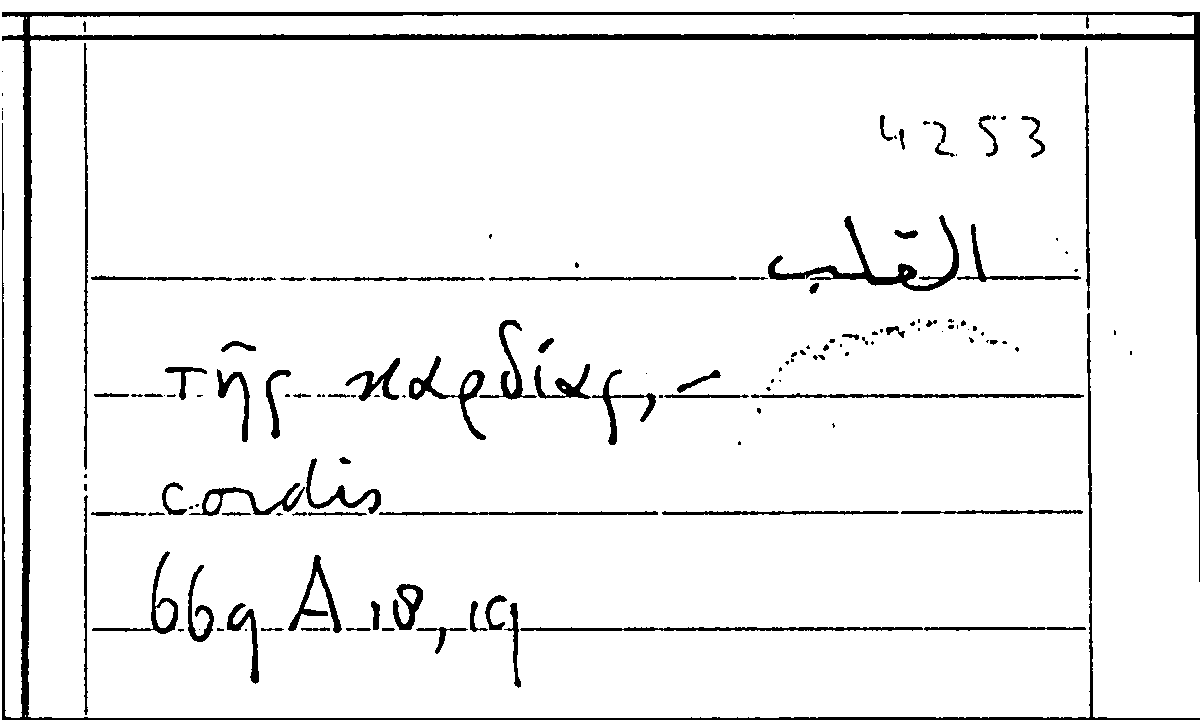 4253
القلب
τῆς καρδίας, –
cordis
669 A 18, 19